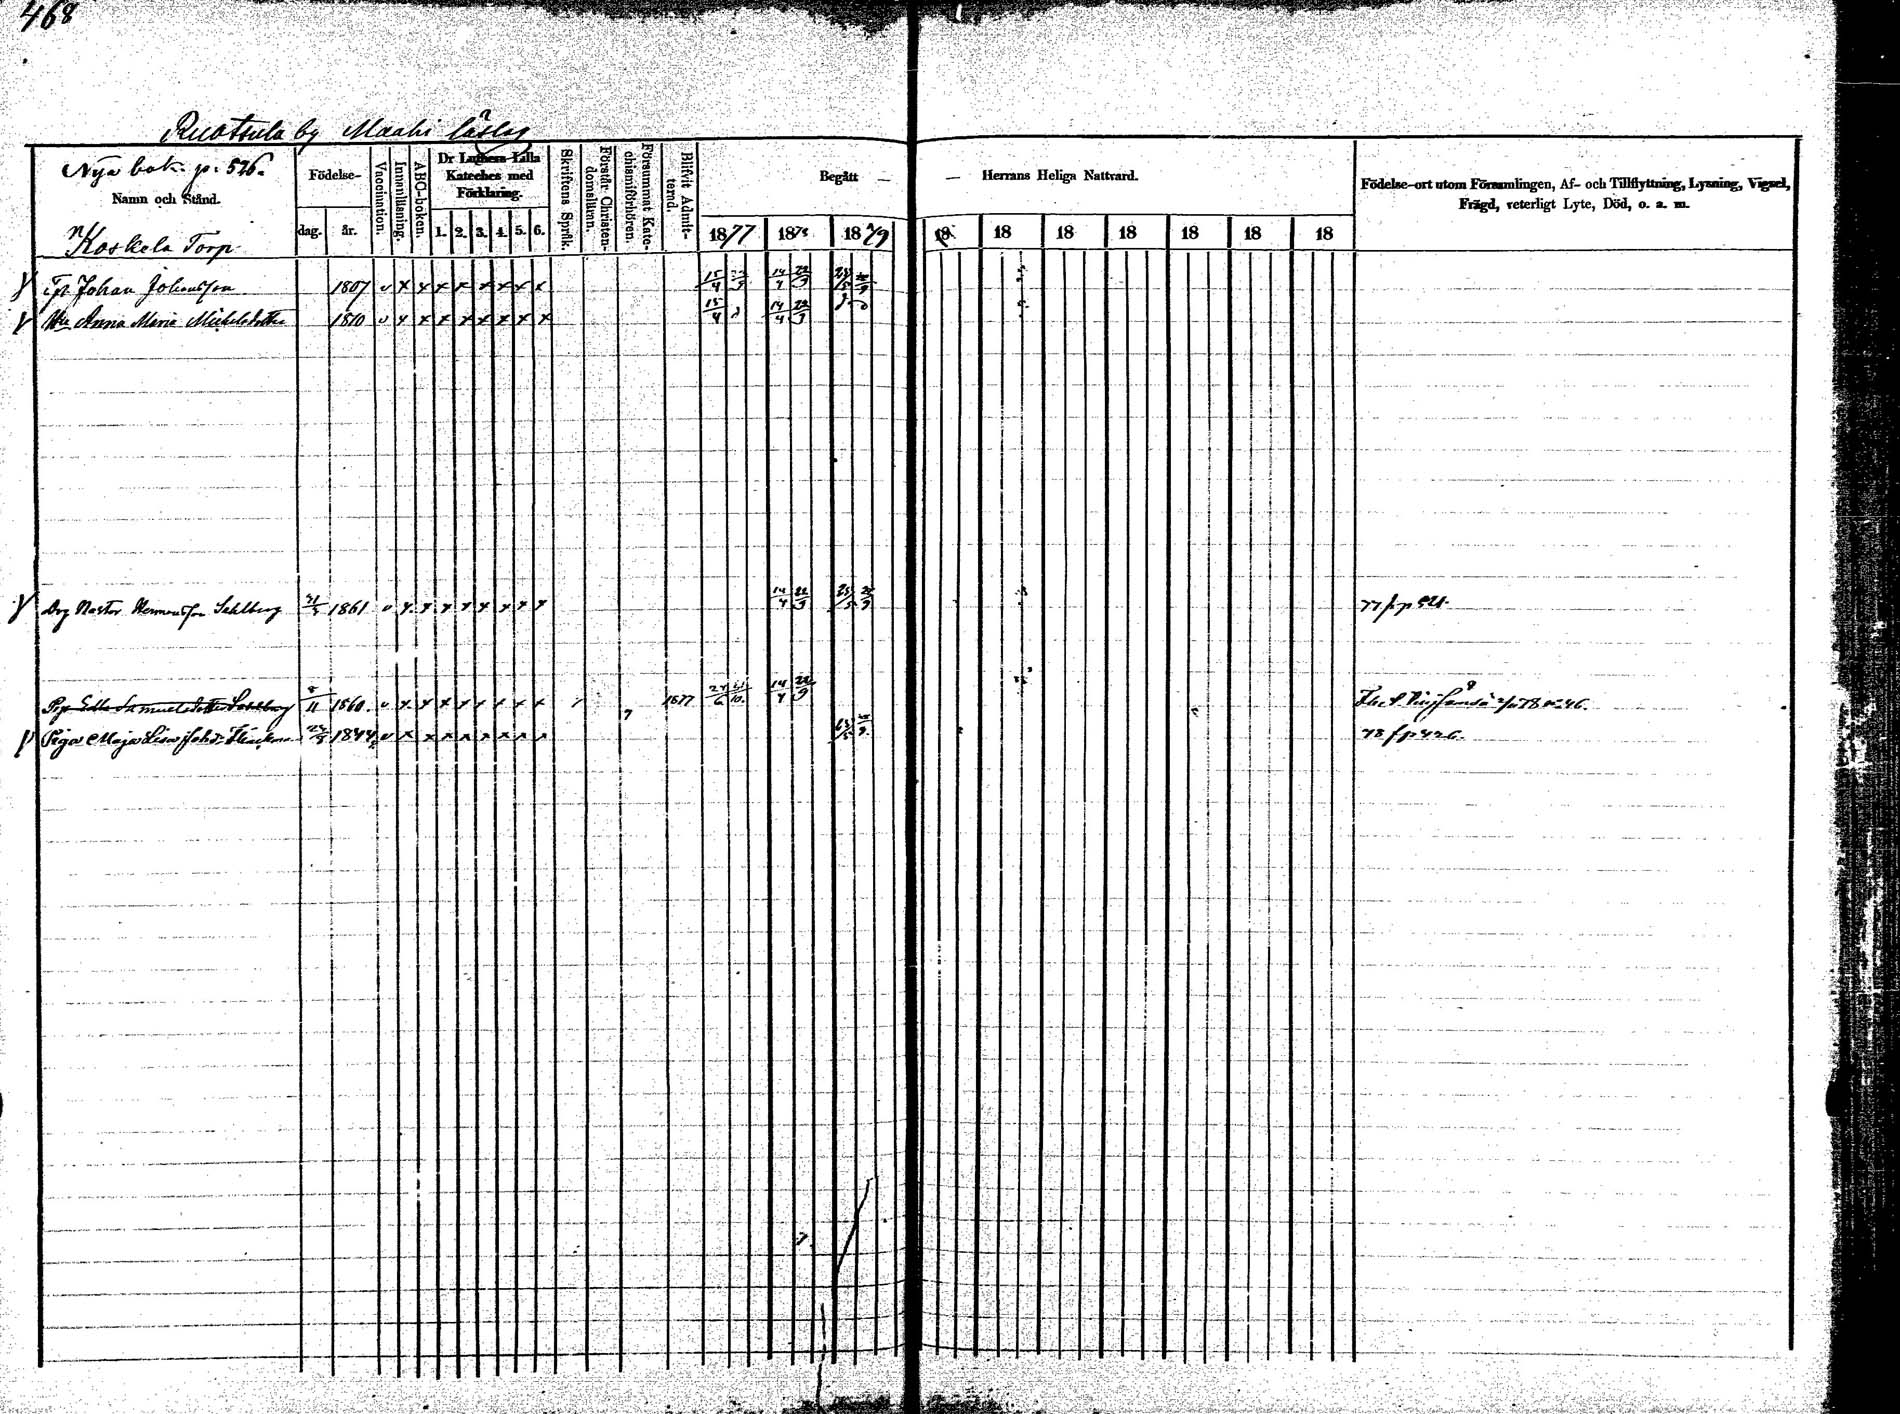 468
Ruotsula by Maahi läslag
Nya bok. p. 526.
Namn och Stånd.
Koskela Torp
Födelse-
dag. år.
Vaccination.
Innanläsning.
ABC-boken.
Dr Luthers Lilla
Kateches med
Förklaring.
1. 2. 3. 4. 5. 6.
Skriftens Språk.
Förstår Christen-
domsläran.
Försummat Kate-
chismiförhören.
Blifvit Admit-
terad.
Begått — — Herrans Heliga Nattvard.
1877 1878 1879 18 18 18 18 18 18 18
Födelse-ort utom Församlingen, Af- och Tillflyttning, Lysning, Vigsel,
Frägd, veterligt Lyte, Död, o. a. m.
Tp. Johan Johansson 1807 v x x x x x x x x 15/4 14/4 22/9
Anna Maria Michelsdotter 1810 v x x x x x x x x 15/4 14/4 22/9
Drg Nestor Hermansson Sahlberg 1861 v x x x x x x x x 14/4 22/9 77 f. p 521.
Pig. Edla Samuelsdotter Sahlberg 8/11 1860. v x x x x x x x x 1877 14/4 22/9
Piga Maja Lisa 1844 v x x x x x x x x 78 f p 426.